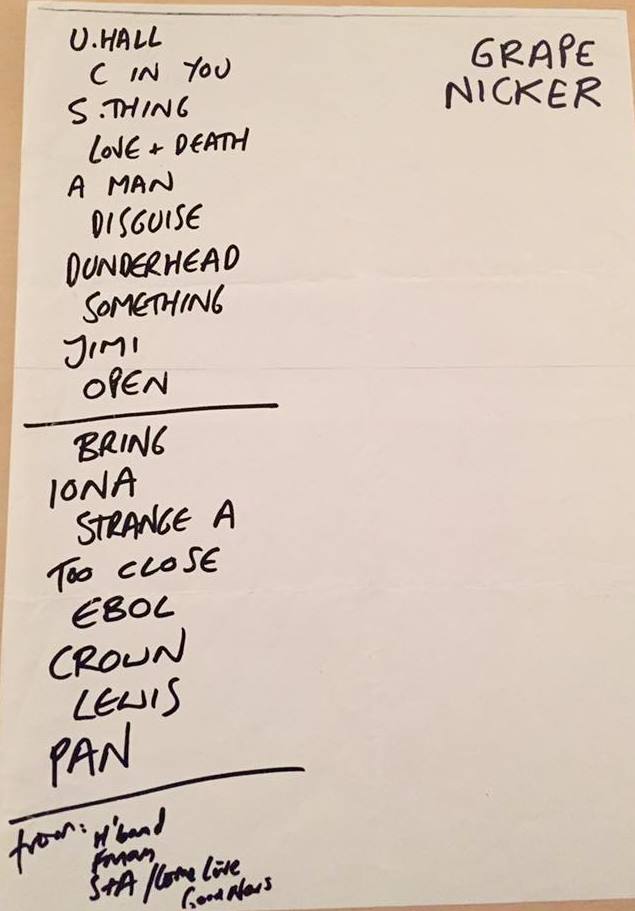 U.HALL
C IN YOU
S.THING
LOVE + DEATH
A MAN
DISGUISE
DUNDERHEAD
SOMETHING
JIMI
OPEN
BRING
IONA
STRANGE A
TOO CLOSE
EBOL
CROWN
LEWIS
PAN
from: H'band
S+A / Come Love
Good News
GRAPE
NICKER